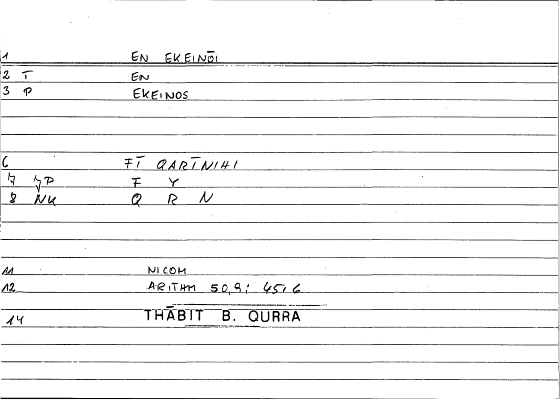 1 EN EKEINŌI
2 T EN
3 P EKEINOS
6 FĪ QARĪNIHI
7 YP F Y
8 NK Q R N
11 NICOM
12 ARITHM 50,9; 45,6
14 THĀBIT B. QURRA